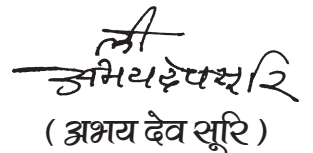 ली
अभयदेवसूरि
( अभय देव सूरि )